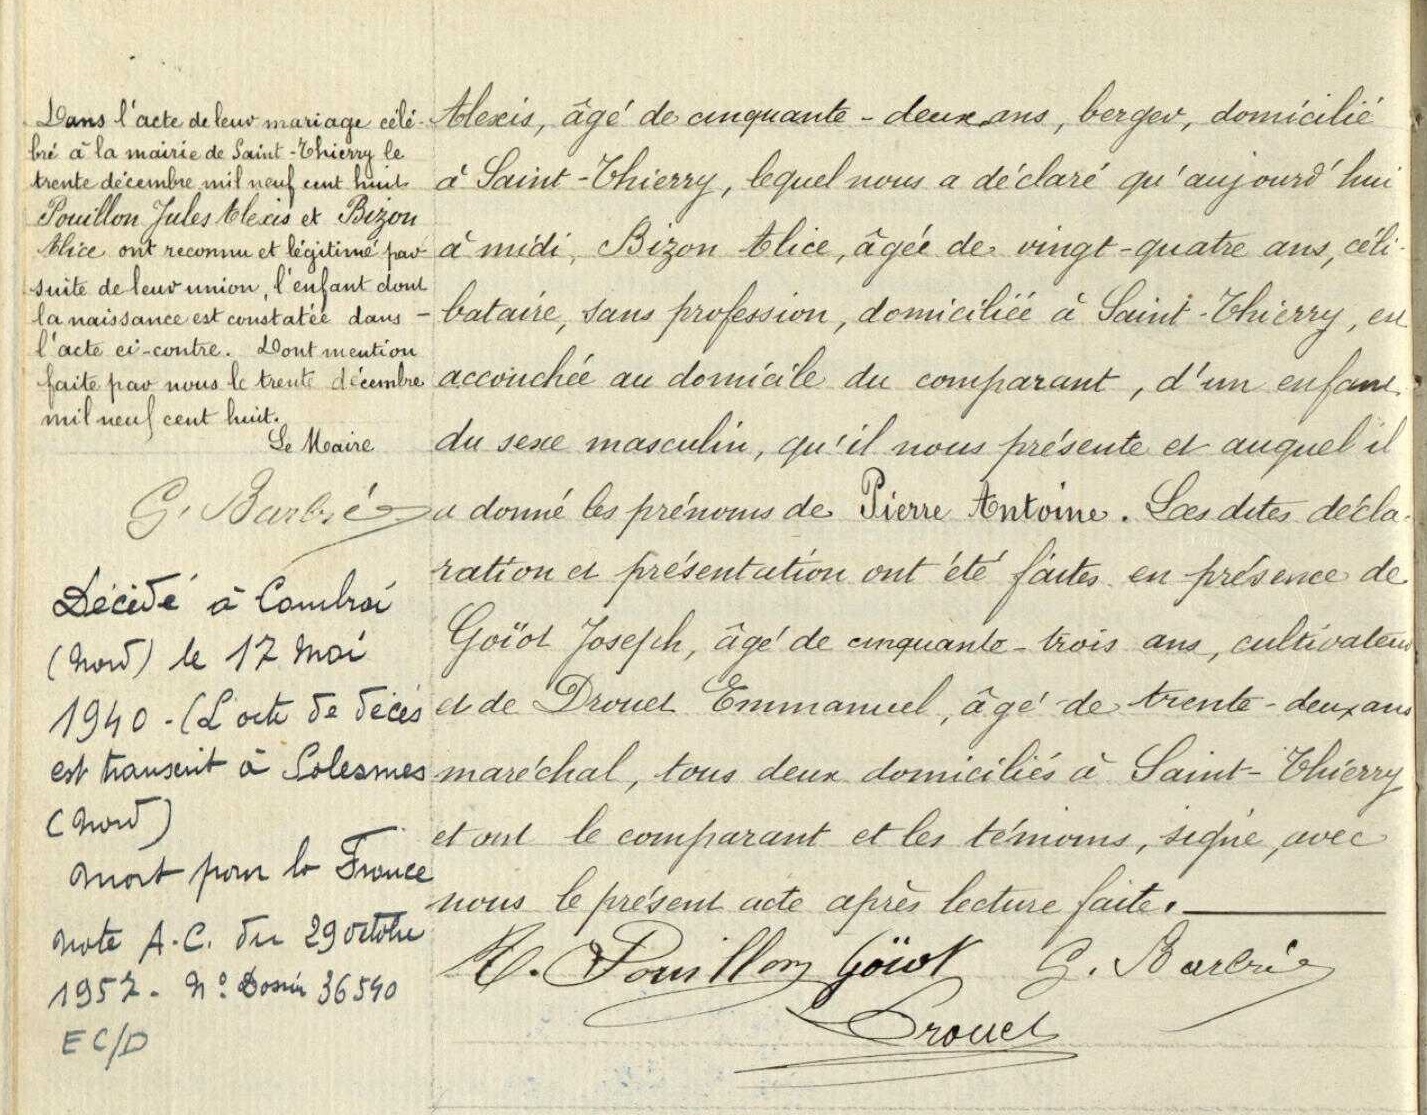 Dans l'acte de leur mariage célé-
bré à la mairie de Saint-Thierry le
trente décembre mil neuf cent huit
Pouillon Jules Alexis et Bizon
Alice ont reconnu et légitimé par
suite de leur union, l'enfant dont
la naissance est constatée dans -
l'acte ci-contre. Dont mention
faite par nous le trente décembre
mil neuf cent huit.
Le Maire
G. Barbié
Décédé à Cambrai
(Nord) le 17 Mai
1940 - (L'acte de décès
est transcrit à Solesmes
(Nord)
Mort pour la France
Note A.C. du 29 octobre
1957. N° Dossier 36540
EC/D
Alexis, âgé de cinquante-deux ans, berger, domicilié
à Saint-Thierry, lequel nous a déclaré qu'aujourd'hui
à midi, Bizon Alice, âgée de vingt-quatre ans, céli-
bataire, sans profession, domiciliée à Saint-Thierry, est
accouchée au domicile du comparant, d'un enfant
du sexe masculin, qu'il nous présente et auquel il
a donné les prénoms de Pierre Antoine. Les dites décla-
ration et présentation ont été faites en présence de
Goïot Joseph, âgé de cinquante-trois ans, cultivateur
et de Drouet Emmanuel, âgé de trente-deux ans
maréchal, tous deux domiciliés à Saint-Thierry
et ont le comparant et les témoins, signé, avec
nous le présent acte après lecture faite.
A. Pouillon Goïot G. Barbié
Drouet